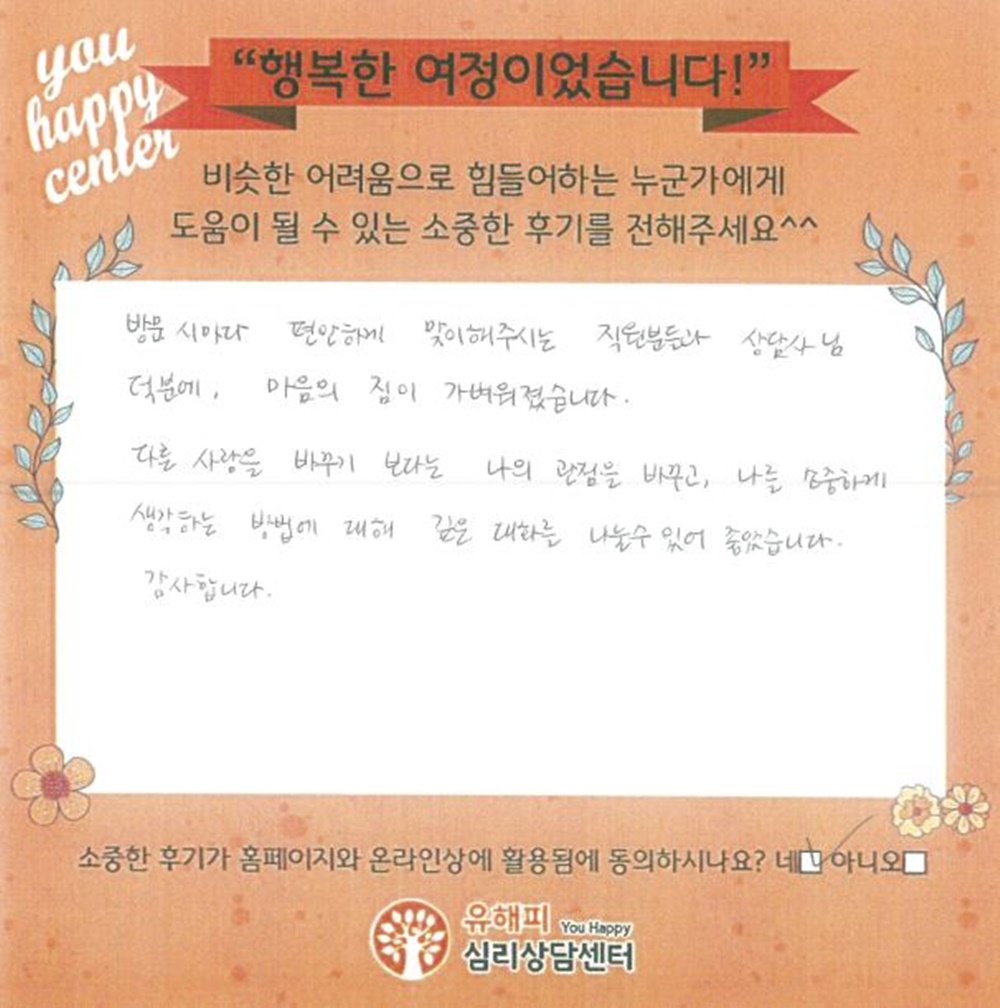 you
happy
center
“행복한 여정이었습니다!”
비슷한 어려움으로 힘들어하는 누군가에게
도움이 될 수 있는 소중한 후기를 전해주세요^^
방문 시마다 편안하게 맞이해주시는 직원분들과 상담사님
덕분에, 마음의 짐이 가벼워졌습니다.
다른 사람을 바꾸기 보다는 나의 관점을 바꾸고, 나를 소중하게
생각하는 방법에 대해 깊은 대화를 나눌수 있어 좋았습니다.
감사합니다.
소중한 후기가 홈페이지와 온라인상에 활용됨에 동의하시나요? 네☑ 아니오□
유해피 You Happy
심리상담센터